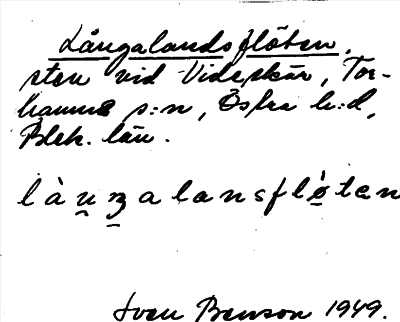 Långalandsflöten,
sten vid Videskär, Tor-
hamns s:n, Östra h:d,
Blek. län.
làṉʒ̱alansflò̱ten
Sven Benson 1949.